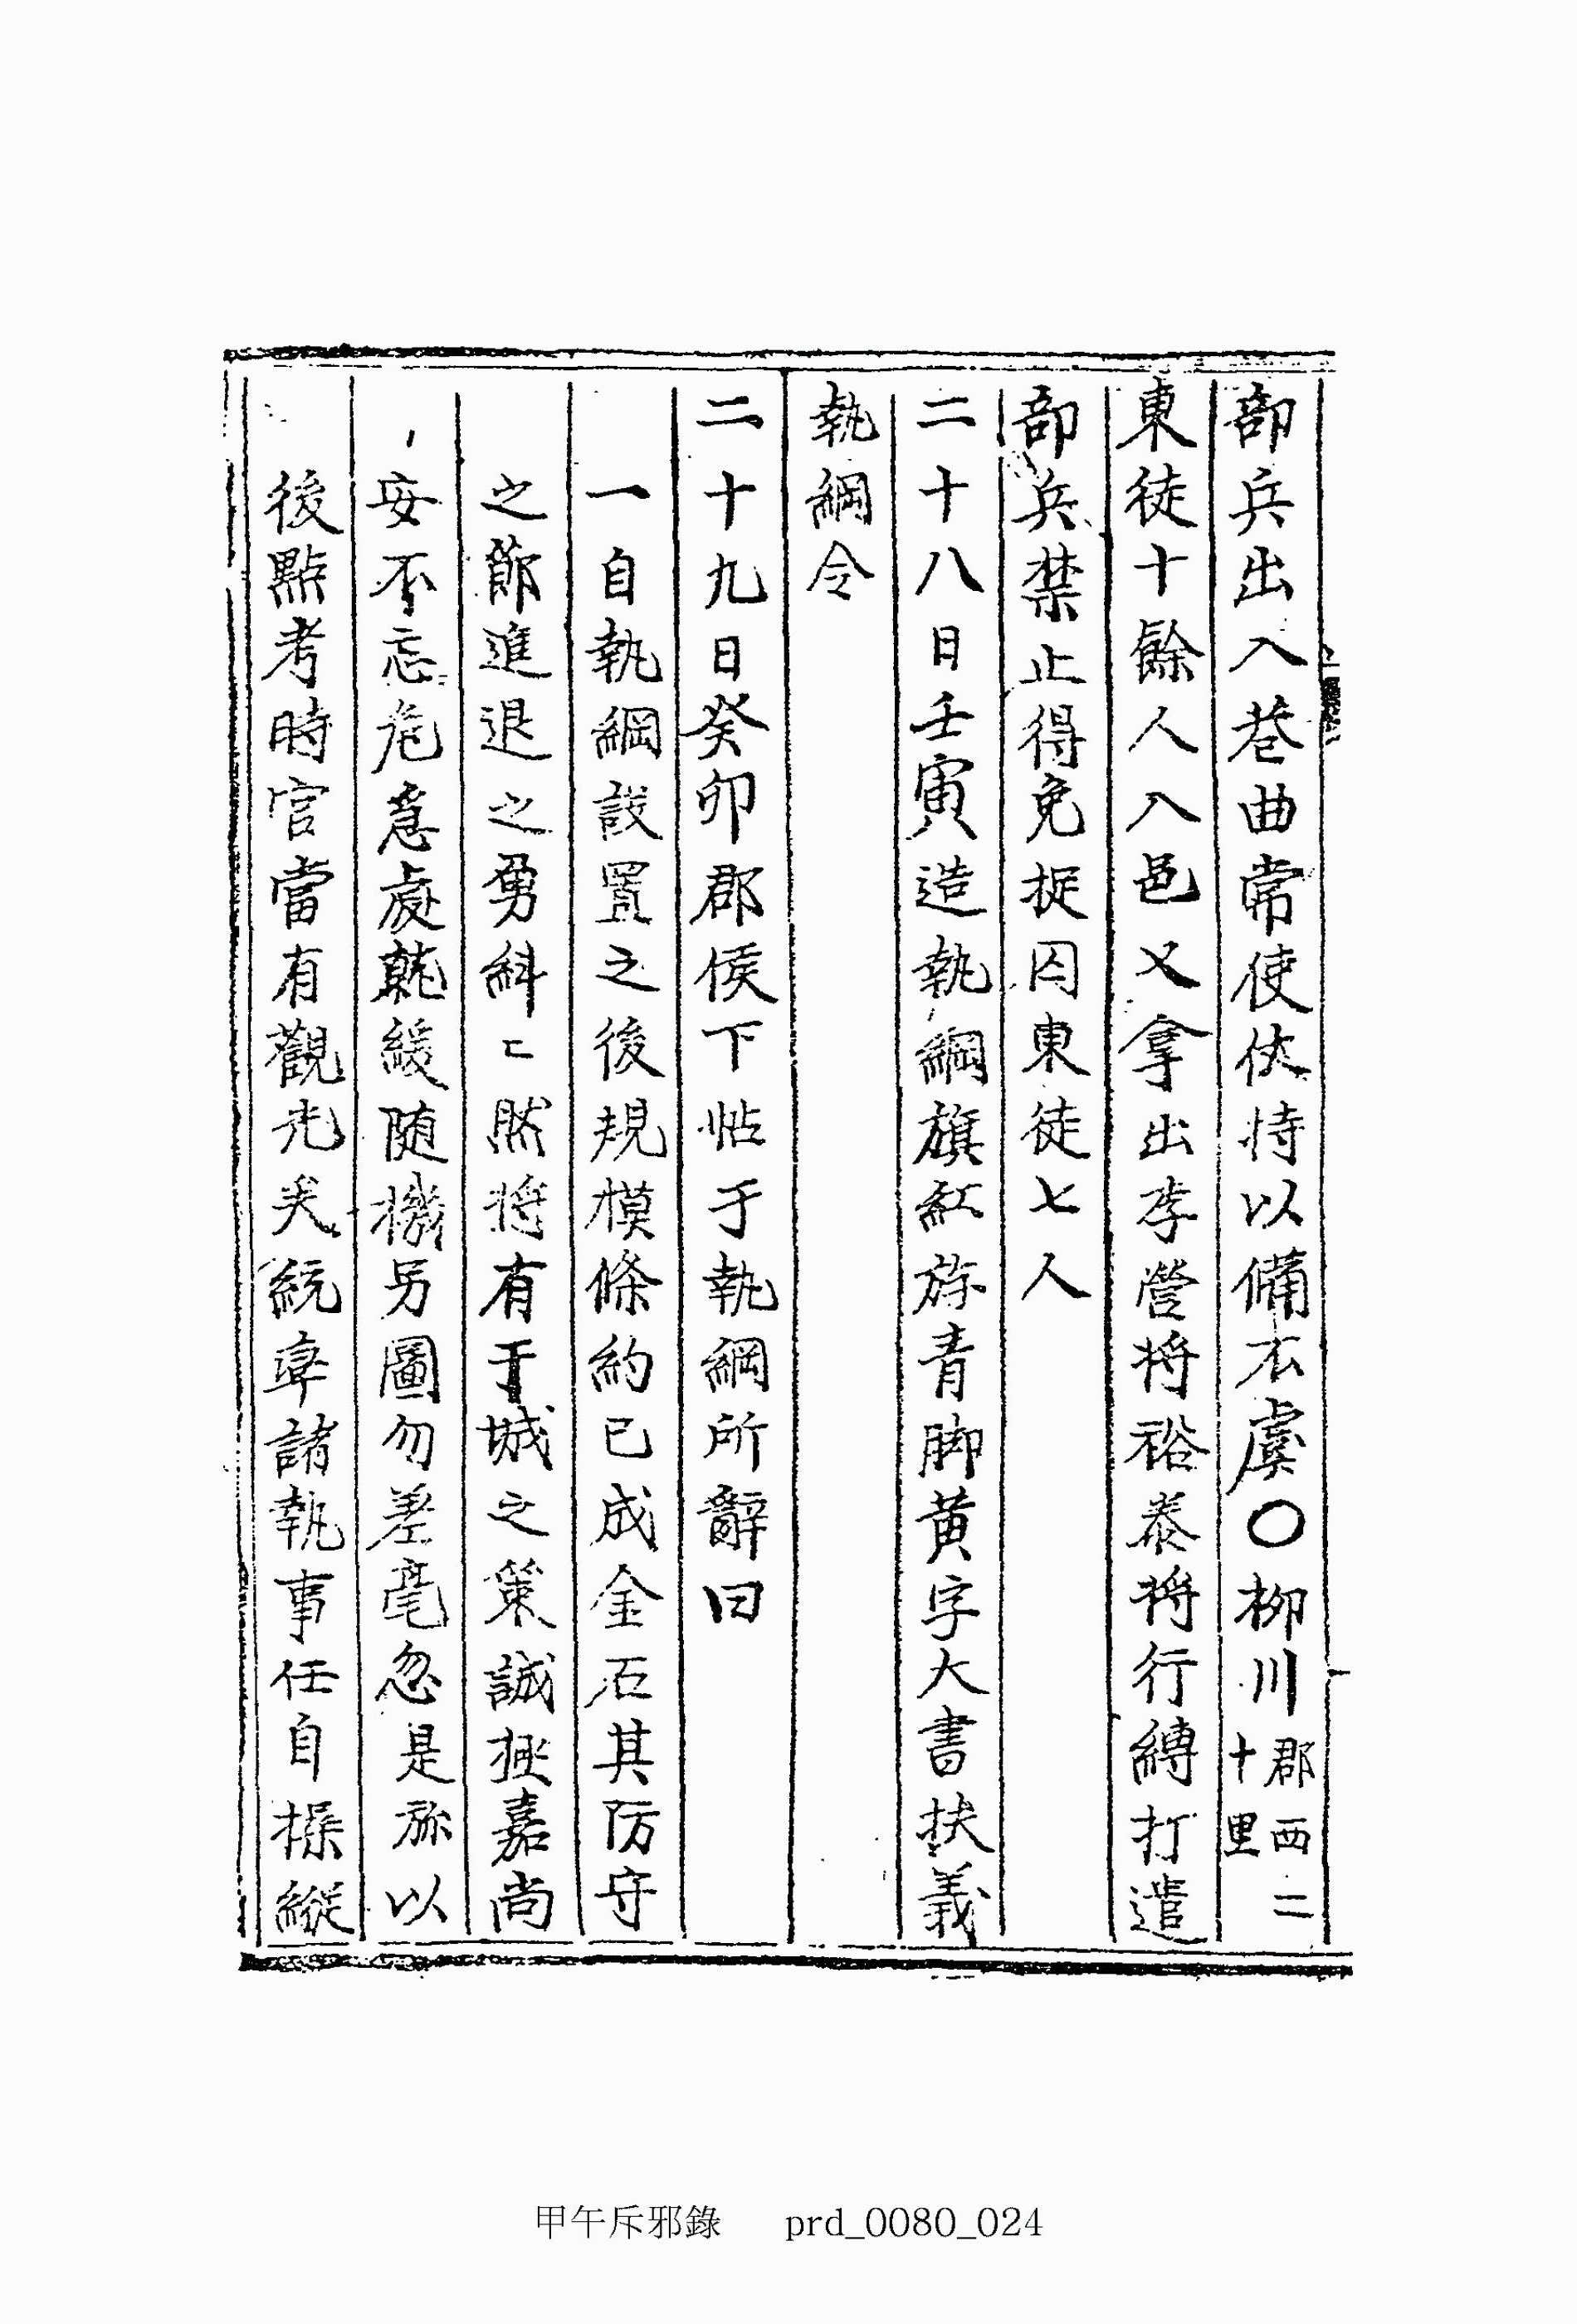 部兵出入巷曲常使伏待以備不虞○柳川郡西二十里
東徒十餘人入邑又拿出李營將裕泰將行縛打遣
部兵禁止得免捉囚東徒七人
二十八日壬寅造執綱旗紅斿青脚黃字大書扶義
執綱令
二十九日癸卯郡侯下帖于執綱所辭曰
一自執綱設置之後規模條約已成金石其防守
之節進退之勇糾〻然將有于城之策誠極嘉尚
安不忘危急處輒緩随機另圖勿差毫忽是旀以
後點考時官當有觀光矣統率諸執事任自操縱
甲午斥邪錄 prd_0080_024